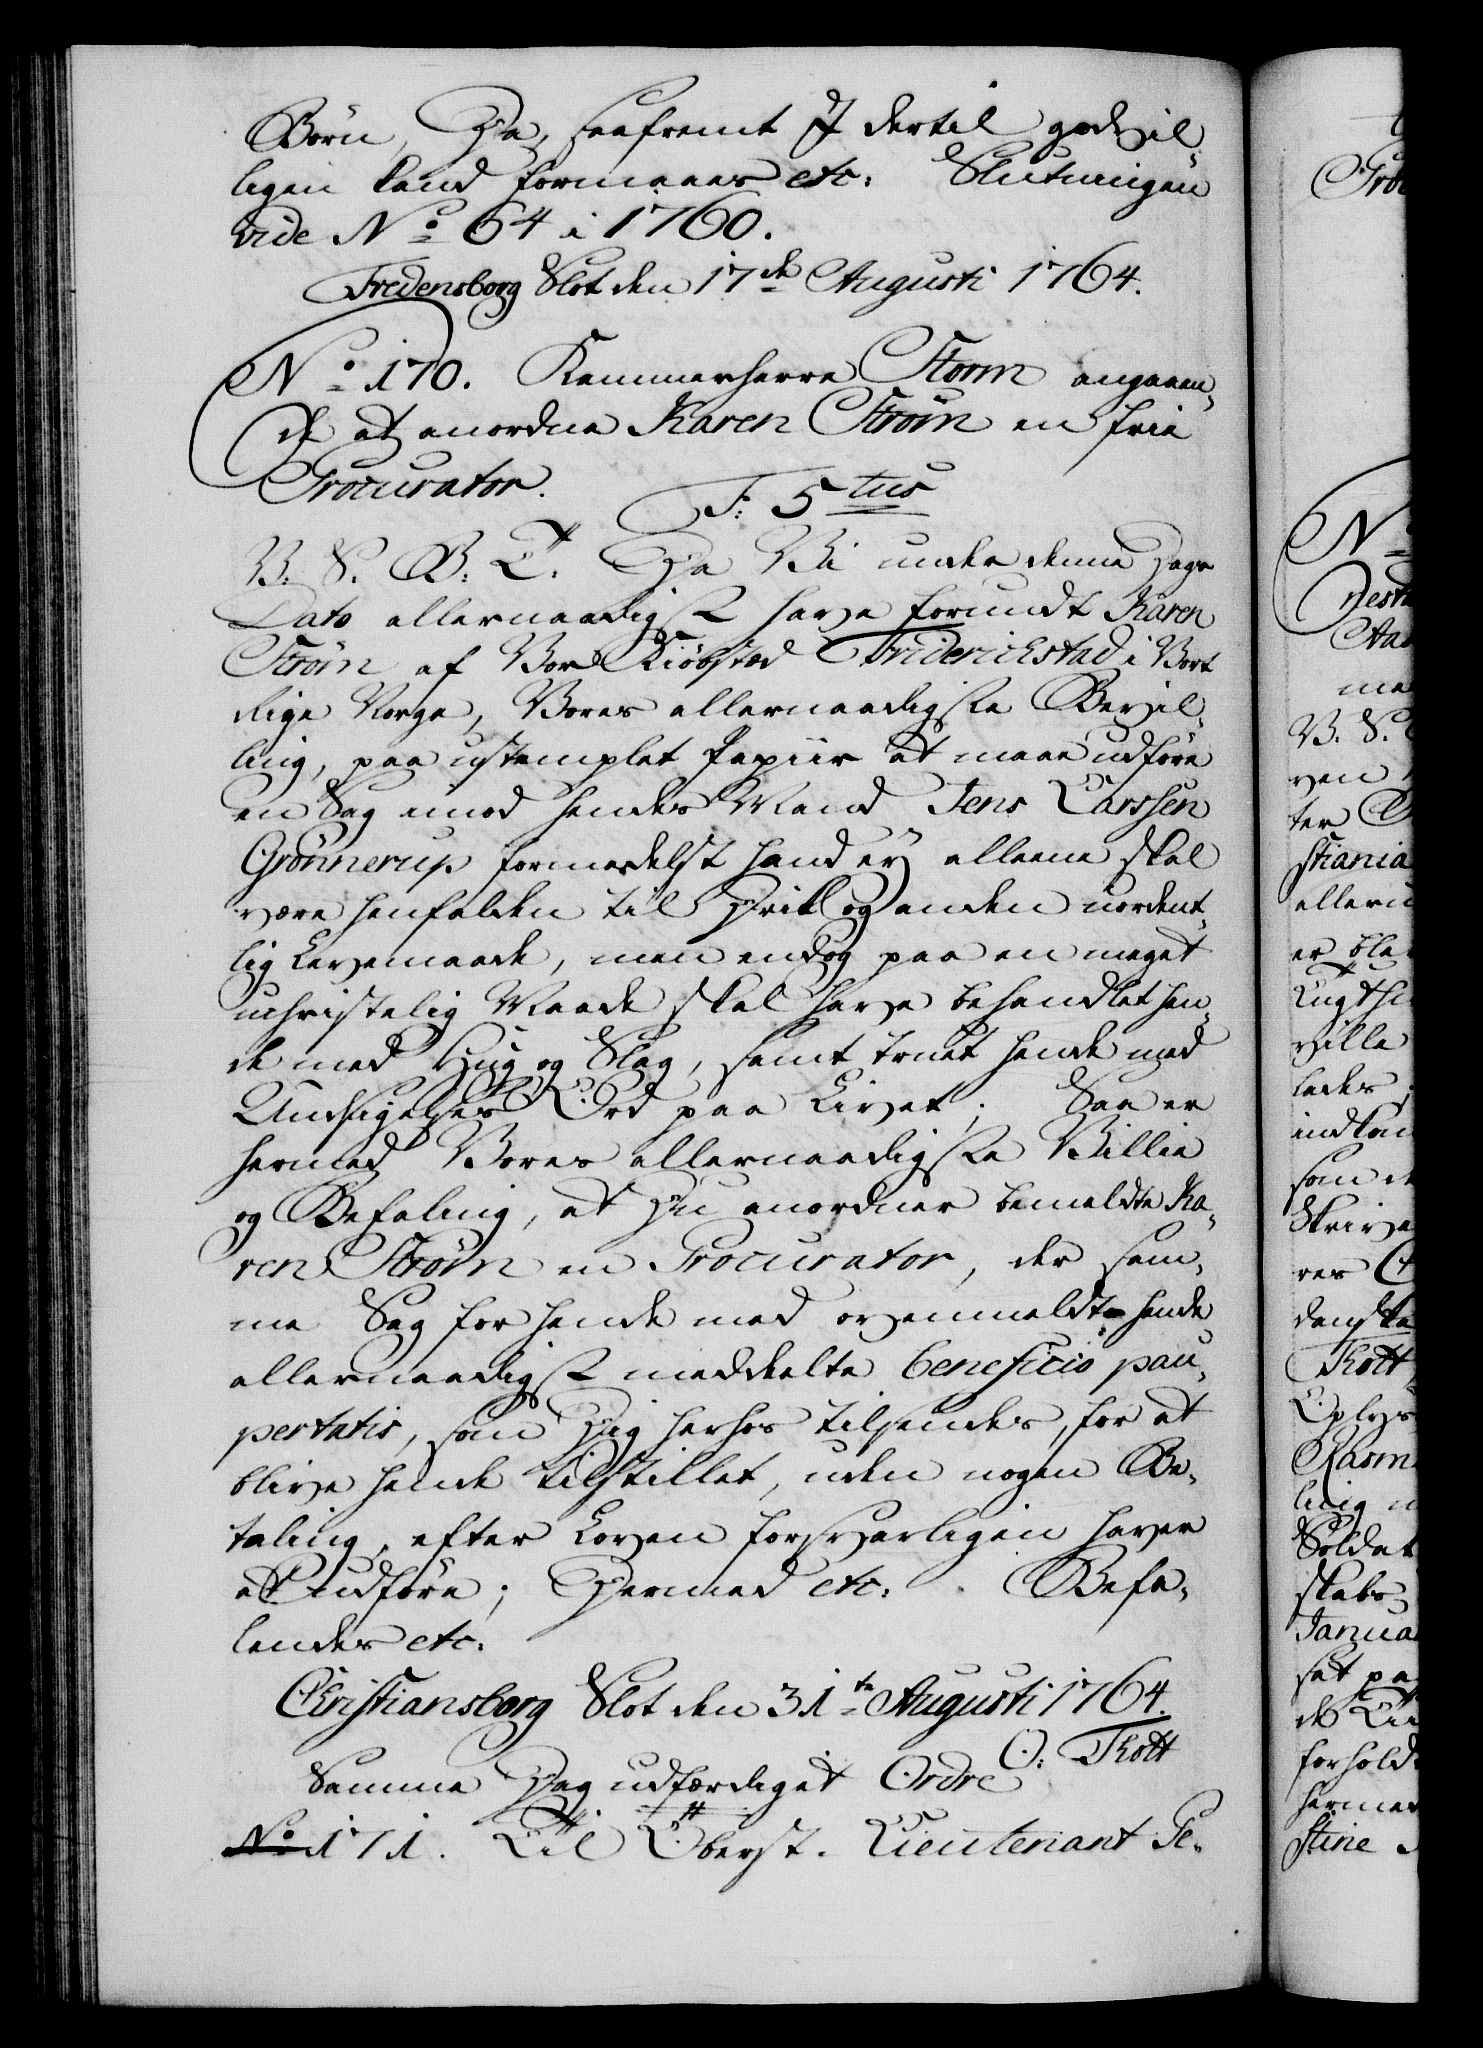 Børn, Da, saafremt I dertil godvil,
ligen kand formaaes etc: Slutningen
vide No 64 i 1760.
Fredensborg Slot den 17de Augusti 1764.
No 170. Kammerherre Storm angaaen,
de at anordne Karen Strøm en frie
Procurator.
F: 5tus
V. S. G. T. Da Vi under denne Dags
Dato allernaadigst have forundt Karen
Strøm af Vor Kiøbsted Friderichstad i Vort
Rige Norge, Vores allernaadigste Bevil,
ling, paa ustemplet Papiir at maae udføre
en Sag imod hendes Mand Jens Larssen
Grønnerup formedelst hand ej alleene skal
være henfalden til Drik og anden uordent,
lig Levemaade, men endog paa en meget
uchristelig Maade skal have behandlet hen,
de med Hug og Slag, samt truet hende med
Undsigelses Ord paa Livet; Saa er
hermed Vores allernaadigste Villie
og Befaling, at Du anordner bemeldte Ka,
ren Strøm en Procurator, der sam,
me Sag for hende med ovenmeldte hende
allernaadigst meddeelte beneficio pau,
pertatis, som Dig herhos tilsendes, for at
blive hende tilstillet, uden nogen Be,
taling, efter Loven forsvarligen haver
at udføre; Dermed etc: Befa,
lendes etc.
Christiansborg Slot den 31te Augusti 1764.
O: Thott
Samme Dag udfærdiget Ordre
No 171. Til Oberst-Lieutenant Pe-